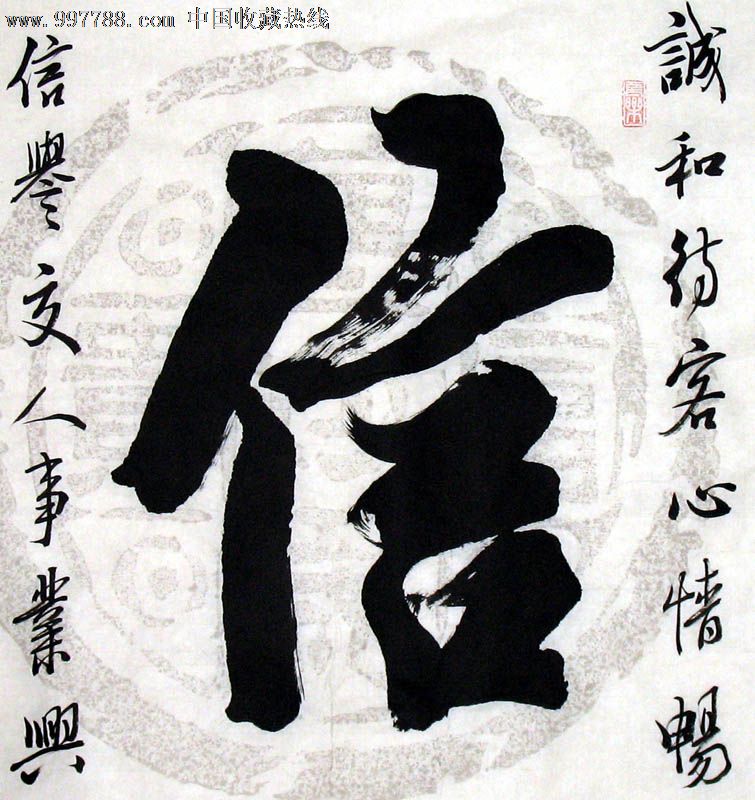 www.997788.com 中国收藏热线
誠和待客心情暢
信
信譽交人事業興